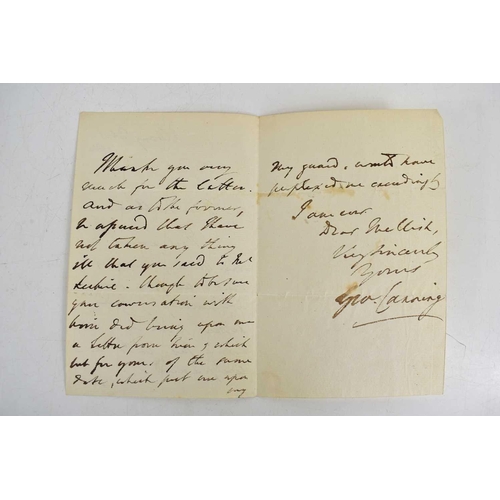 Thank you very
much for the latter.
And as to the former,
be assured that I have
not taken any thing
ill that you said to Mr
Leckie. Though to be sure
your conversation with
him did bring upon me
a letter from him, which
but for yours of the same
date, which put me upon
my
my guard, would have
perplexed me exceedingly
I am ever
Dear Mellish,
Very sincerely
Yours
Geo. Canning